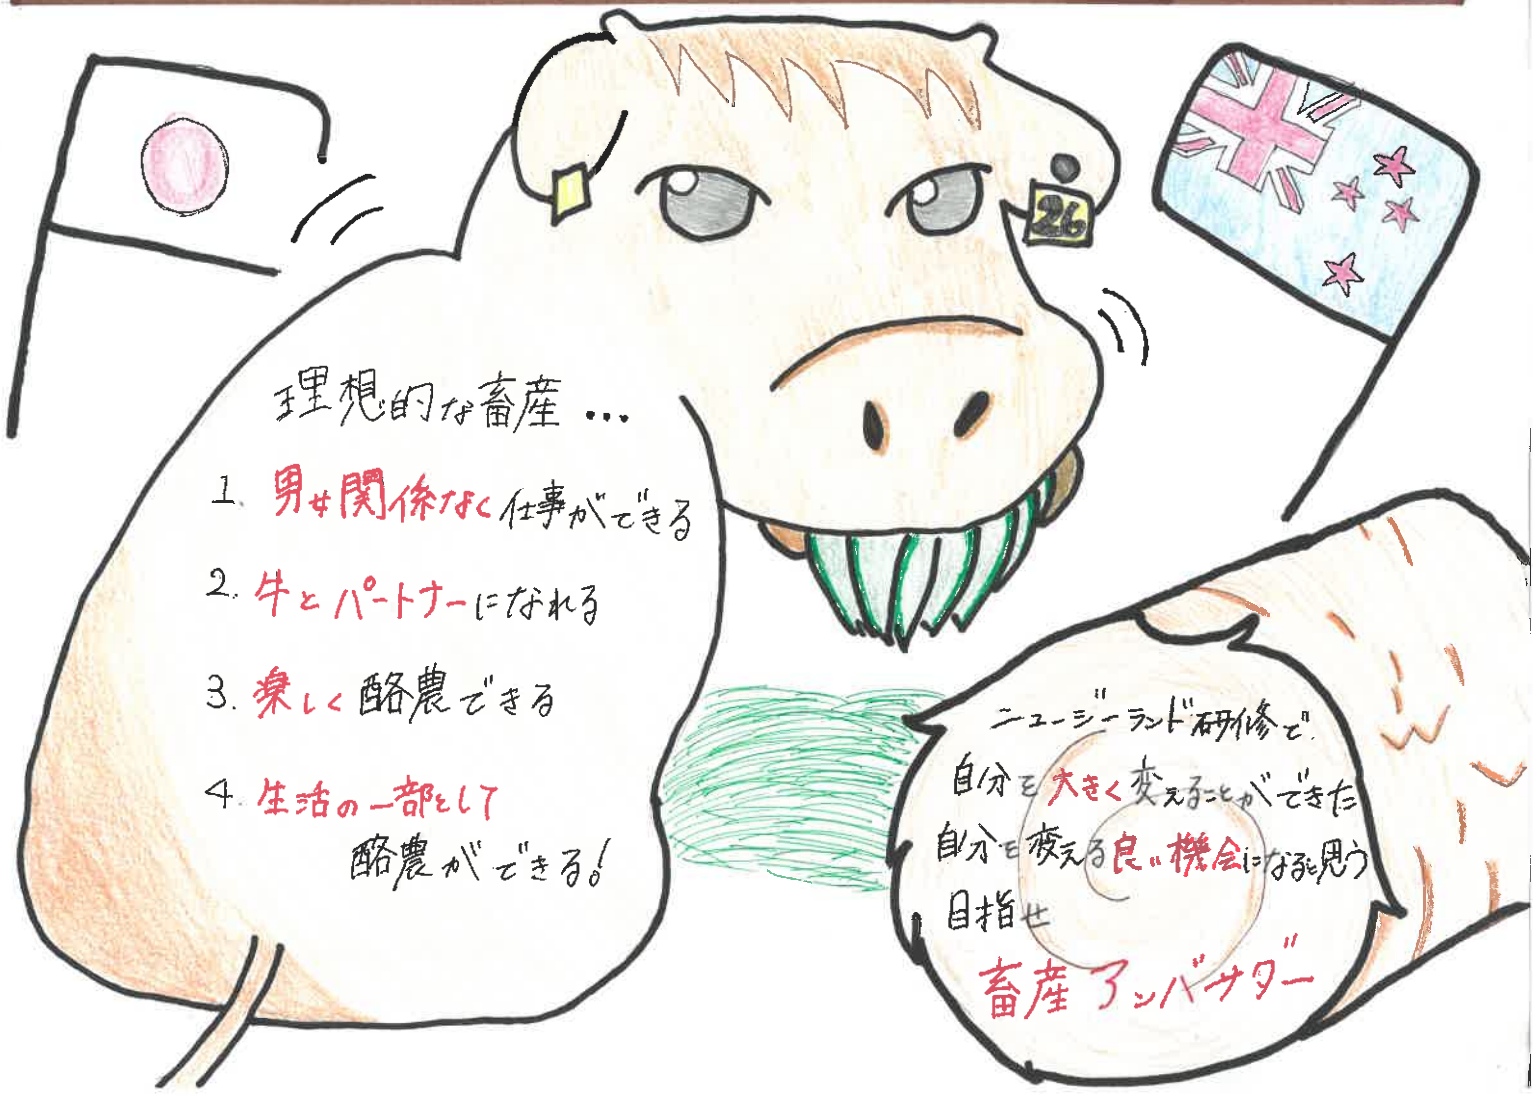 26
理想的な畜産…
1. 男女関係なく仕事ができる
2. 牛とパートナーになれる
3. 楽しく酪農できる
4. 生活の一部として
酪農ができる!
ニュージーランド研修で
自分を大きく変えることができた
自分を変える良い機会になると思う
目指せ
畜産アンバサダー